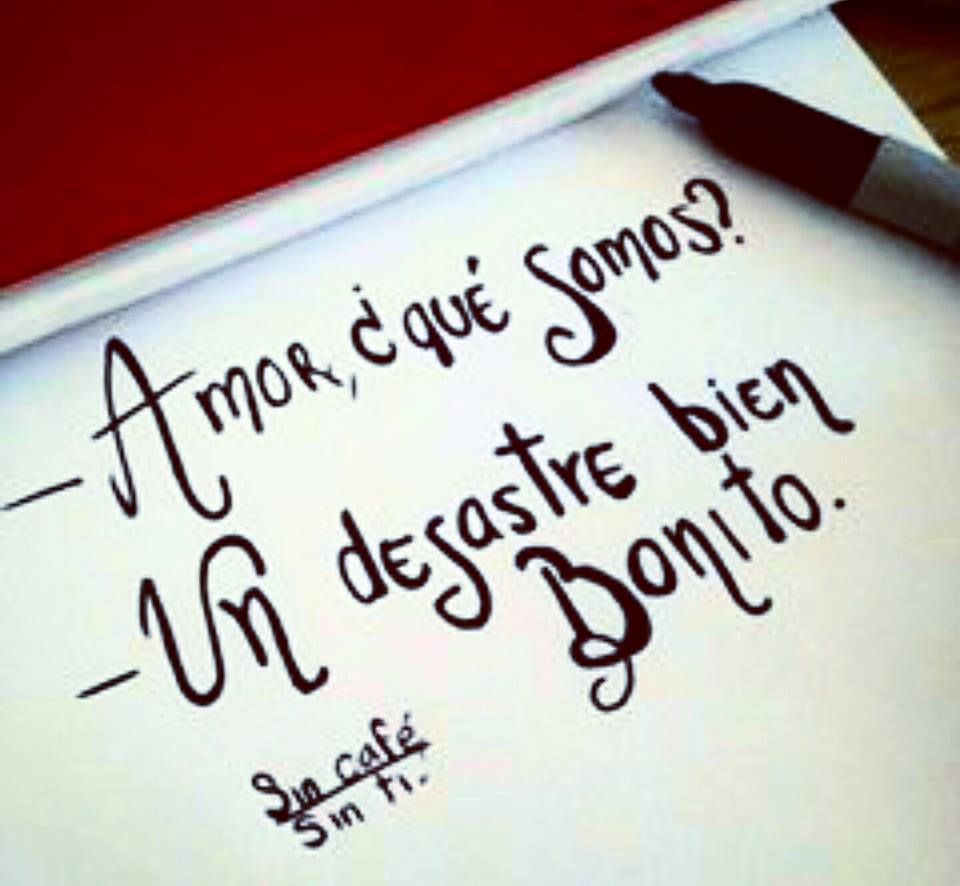 - Amor, ¿qué somos?
- Un desastre bien
Bonito.
Sin café,
Sin ti.